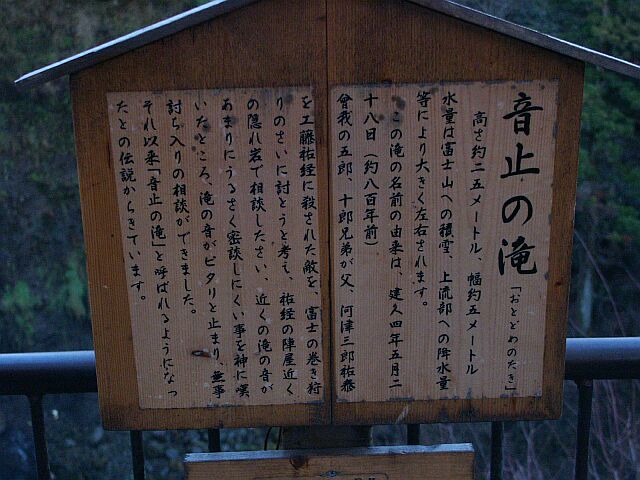 音止の滝「おとどめのたき」
高さ約二五メートル、幅約五メートル
水量は富士山への積雪、上流部への降水量
等により大きく左右されます。
この滝の名前の由来は、建久四年五月二
十八日（約八百年前）
曾我の五郎、十郎兄弟が父、河津三郎祐泰
を工藤祐経に殺された敵を、富士の巻き狩
りのさいに討とうと考え、祐経の陣屋近く
の隠れ岩で相談したさい、近くの滝の音が
あまりにうるさく密談しにくい事を神に嘆
いたところ、滝の音がピタリと止まり、無事
討ち入りの相談ができました。
それ以来「音止の滝」と呼ばれるようになっ
たとの伝説からきています。